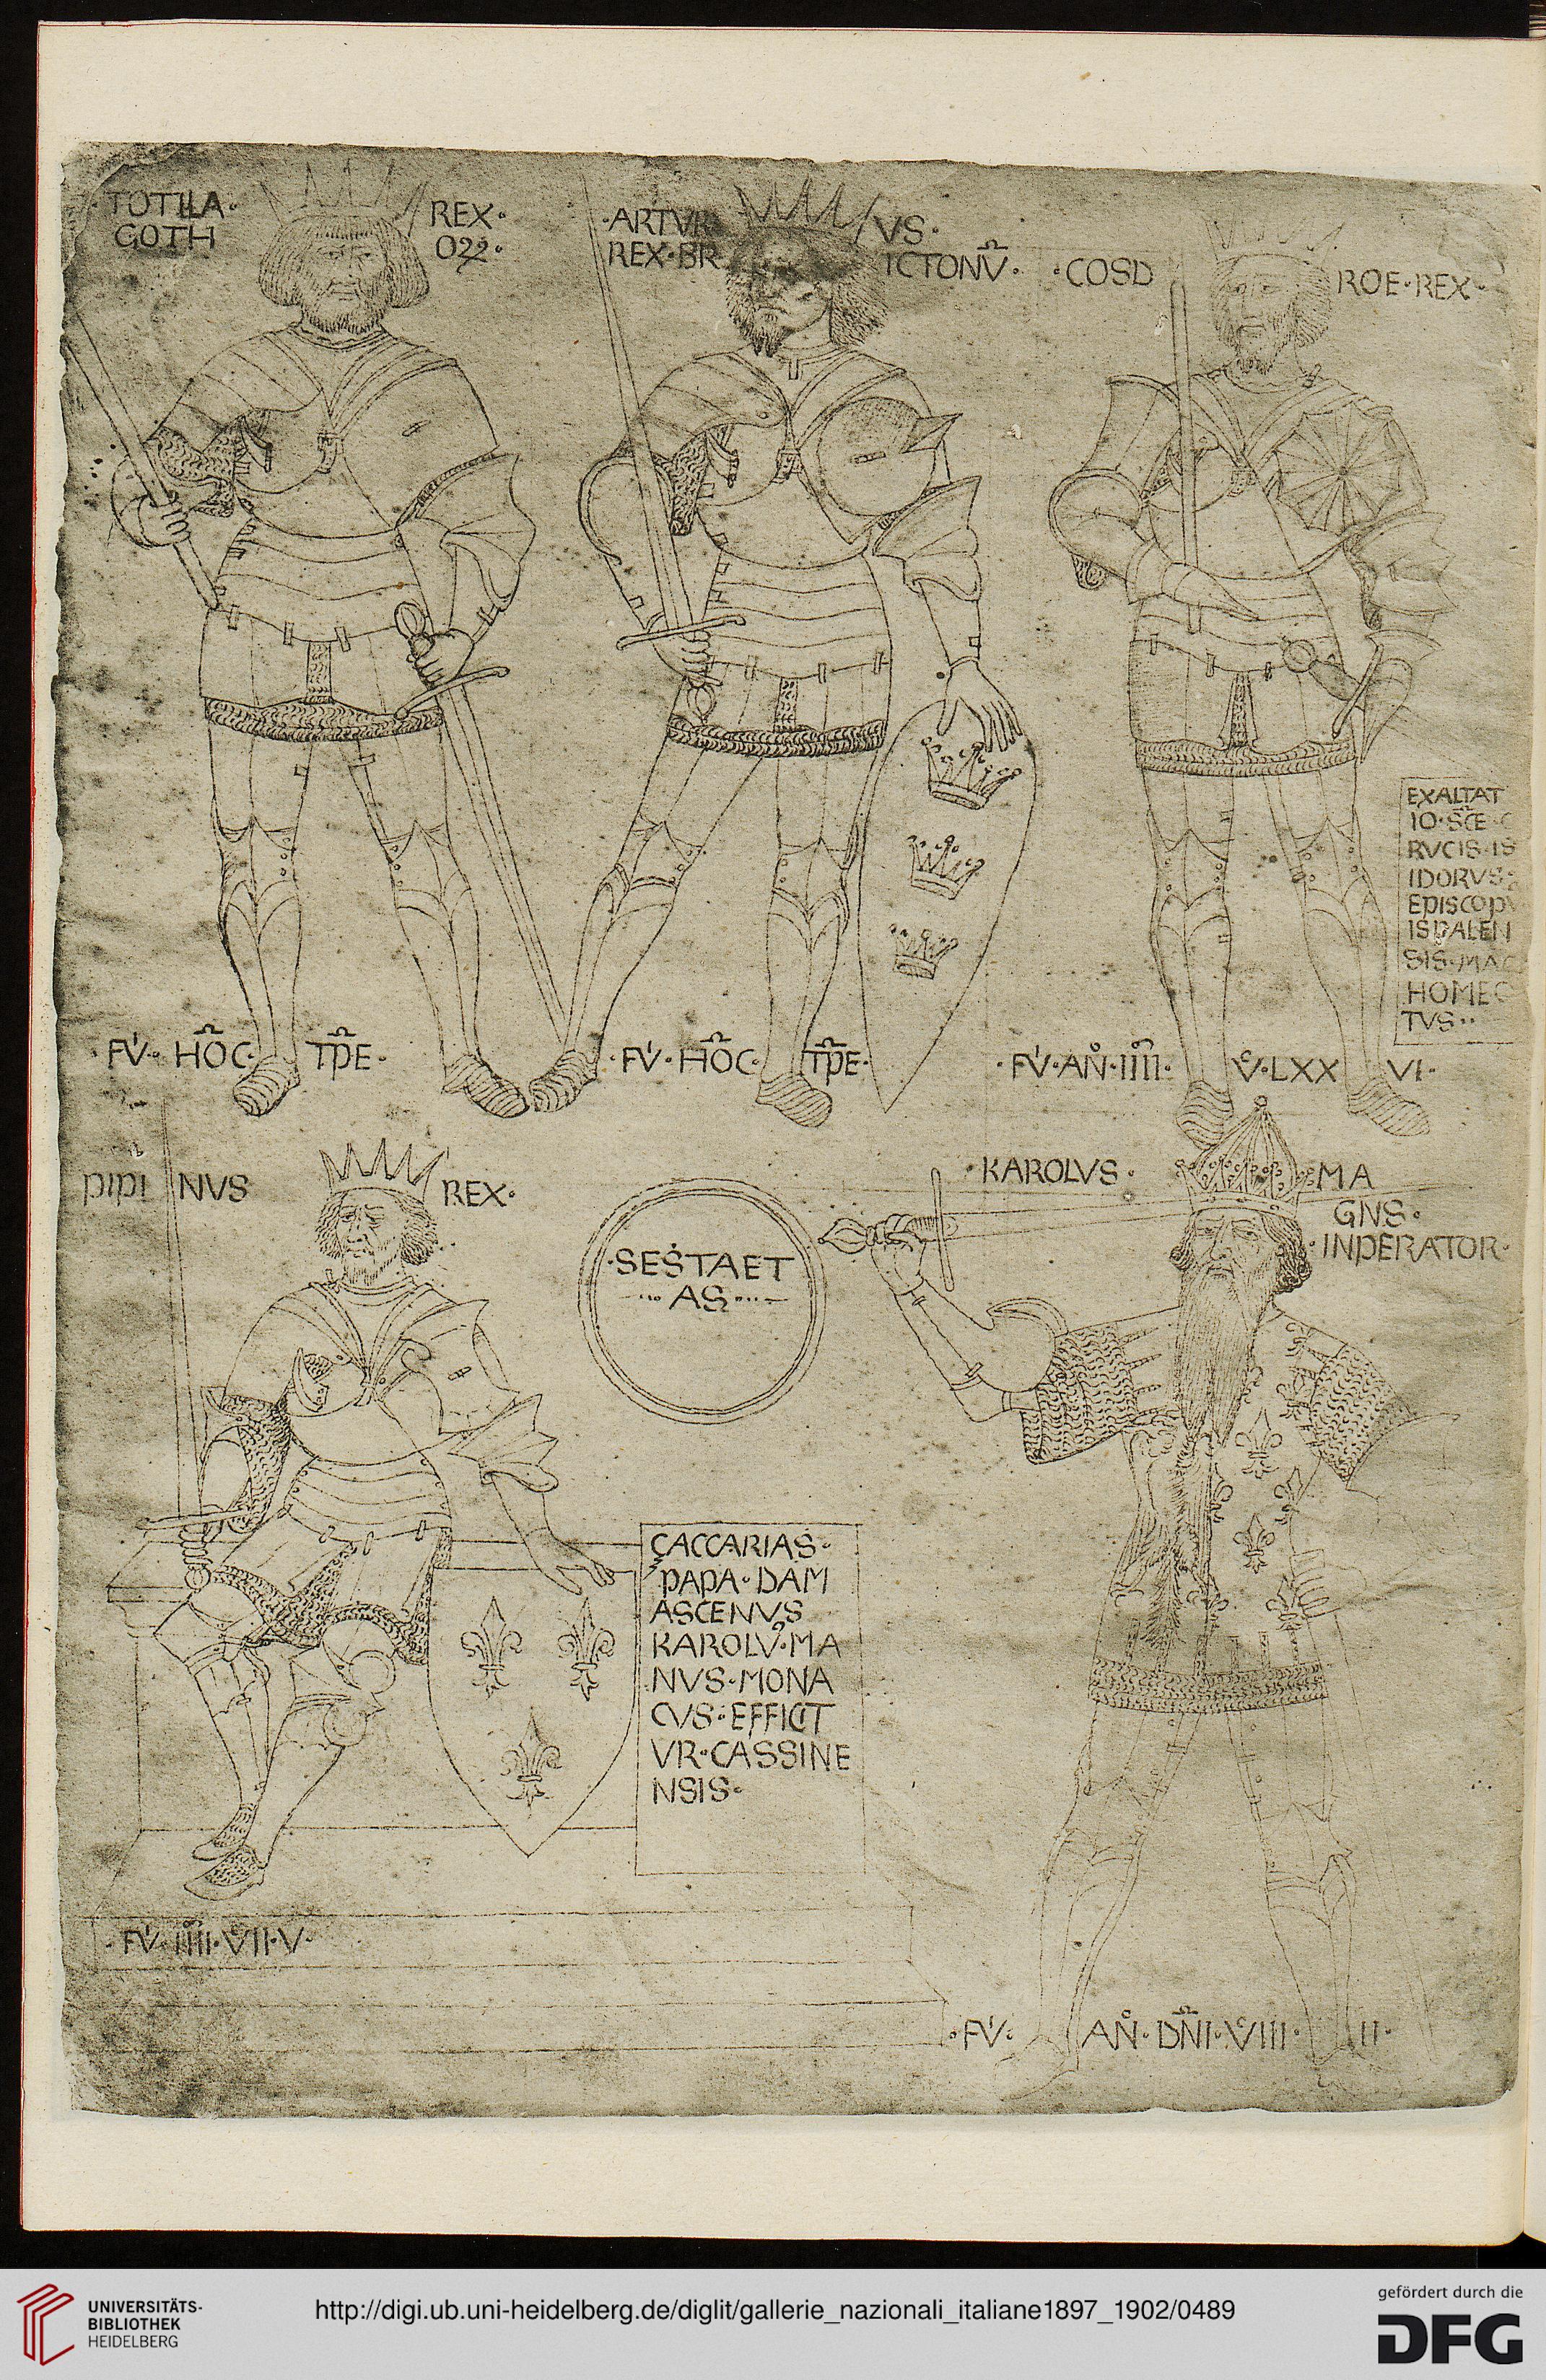 ·TOTILA· REX·
GOTH O22·
·ARTVR VS·
REX·BR ICTONV·
·COSD ROE·REX·
EXALTAT
IO·SCE·C
RVCIS·IS
IDORVS·
EPISCOPV
ISPALEN
SIS·MAC
HOMEC
TVS··
·FV· HOC· TPE·
·FV·HOC· TPE·
·FV·AN·IIII· V·LXX VI·
PIPI NVS REX·
·SESTAET
AS
·KAROLVS· MA
GNS·
·INPERATOR·
CACCARIAS·
PAPA·DAM
ASCENVS
KAROLV·MA
NVS·MONA
CVS·EFFICIT
VR·CASSINE
NSIS·
·FV·IIII·VII·V·
·FV· AN·DNI·VIII· II·
UNIVERSITÄTS-
BIBLIOTHEK
HEIDELBERG
http://digi.ub.uni-heidelberg.de/diglit/gallerie_nazionali_italiane1897_1902/0489
gefördert durch die
DFG